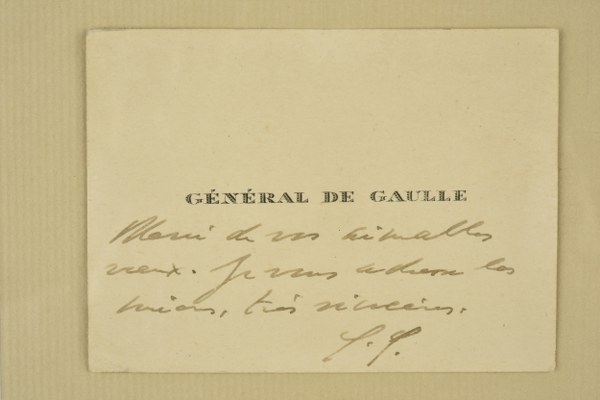 GÉNÉRAL DE GAULLE
Merci de vos aimables
vœux. Je vous adresse les
miens, très sincères.